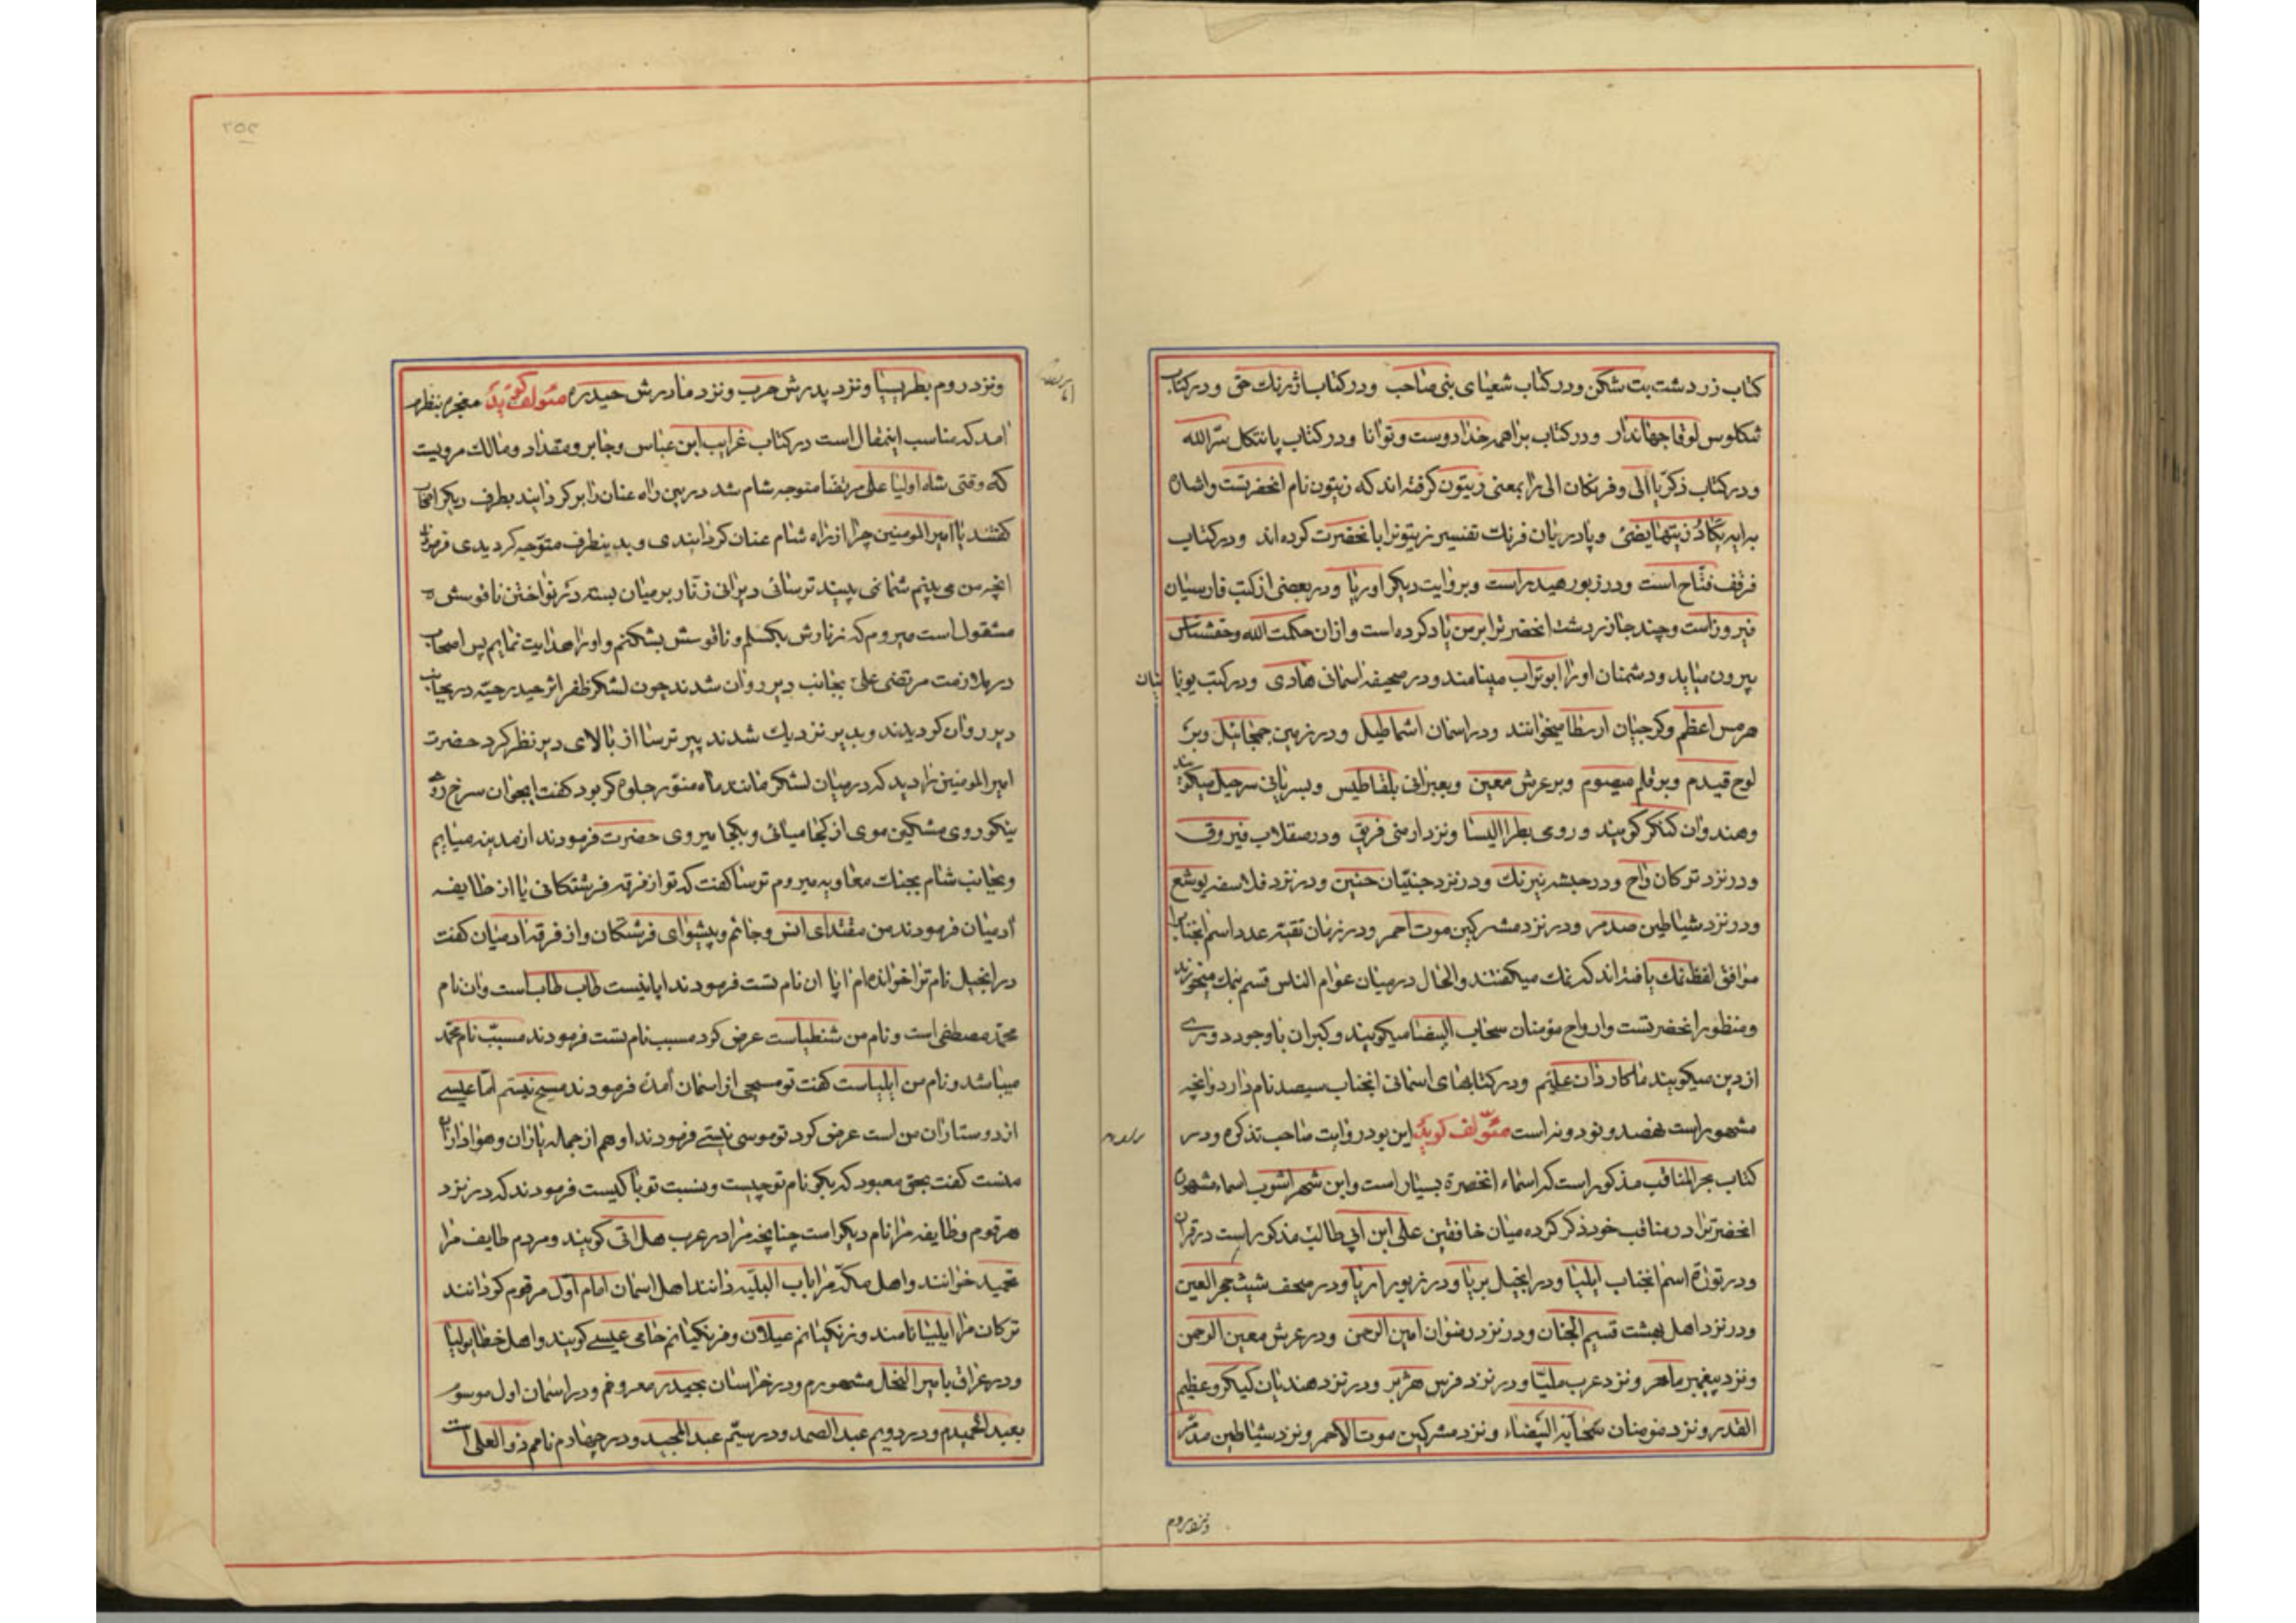 کتاب زردشت بت شکن ودر کتاب شعیای بنی صاحب ودر کتاب اژرنك حق ودر کتاب
شکلوس لوقا جهاندار ودر کتاب براهمه خدا دوست وتوانا ودر کتاب پاتنکل سرّ الله
ودر کتاب ذکریا الی وفرنکان الی را بمعنی زیتون کرفته اند که زیتون نام انحضرتست واشان
برایه یکاد زیتها یضئ وپادریان فرنك تفسیر زیتونرا بانحضرت کرده اند ودر کتاب
فرقف فتّاح است ودر زبور هیدر است وبروایت دیکر اوریا ودر بعضی از کتب فارسیان
فیروز است وچند جا زردشت انحضرترا برمن یاد کرده است وازان حکمت الله وحقشناس
بیرون میاید ودشمنان اورا ابوتراب مینامند ودر صحیفه اسمانی هادی ودر کتب یونا
نیان
هرمس اعظم وکرجیان ارسطا میخوانند ودر اسمان اشماطیل ودر زمین جمحائیل وبر
لوح قیدم وبر قلم میصوم وبر عرش معین وبعبرانی بلقاطیس وبسریانی سرحیل میکویند
وهندوان کنکر کویند وروی بطرا الیسا ونزد ارمنی فریق ودر صقلاب فیروق
ودر نزد ترکان زاح ودر حبشه نیرنك ودر نزد جنّیان حنین ودر نزد فلاسفه یوشع
ودر نزد شیاطین صدمر ودر نزد مشرکین موت احمر ودر زمان تقیّه عدد اسم انجنابرا
موافق لفظ نمك یافته اند که نمك میکفتند والحال در میان عوام الناس قسم بنمك میخورند
ومنظور انحضرتست وارواح مؤمنان سحاب البیضا میکویند وکبران باوجود دوری
از دین میکویند ما کاردان علیّم ودر کتابهای اسمانی انجناب سیصد نام دارد وانچه
مشهور است نهصد ونود ونه است مئوّلف کوید این بود روایت صاحب تذکره ودر
کتاب بحر المناقب مذکور است که اسماء انحضرة بسیار است وابن شهر اشوب اسماء مشهوره
انحضرترا در مناقب خود ذکر کرده میان خافقین علی ابن ابی طالب مذکور است در قران
ودر توراة اسم انجناب ایلیا ودر انجیل بریا ودر زبور اریا ودر صحف شیث حجر العین
ودر نزد اهل بهشت قسیم الجنان ودر نزد رضوان امین الرحمن ودر عرش معین الرحمن
ونزد پیغمبر ماهر ونزد عرب ملیّا ودر نزد فرس هژبر ودر نزد هندیان کبکر وعظیم
القدر ونزد مومنان سحابة البیضاء ونزد مشرکین موت الاحمر ونزد شیاطین مدمّر
ونزد روم
ونزد روم بطریسیا ونزد پدرش حرب ونزد مادرش حیدره مئولف کوید معجزه بنظرم
امد که مناسب اینمقال است در کتاب غرایب ابن عباس وجابر ومقداد ومالك مرویست
که وقتی شاه اولیا علی مرتضا متوجه شام شد در بین راه عنان را بر کردانیند بطرف دیکر اصحاب
کفتند یا امیر المومنین چرا از راه شام عنان کردانیدی وبدینطرف متوّجه کردیدی فرمودند
انچه من می بینم شما نمی بینید ترسائی دیرانی زنّار بر میان بسته در نواختن ناقوسش
مشقول است میروم که زنارش بکسلم وناقوسش بشکنم واورا هدایت نمایم پس اصحاب
در ملازمت مرتضی علی بجانب دیر روان شدند چون لشکر ظفر اثر حیدر حیّه در بجانب
دیر روان کردیدند وبدیر نزدیك شدند پیر ترسا از بالای دیر نظر کرد حضرت
امیر المومنین را دید که در میان لشکر مانند ماه منوّر جلوه کر بود کفت ایجوان سرخ رو
نیکو روی مشکین موی از کجا میائی وبکجا میروی حضرت فرمودند از مدینه میایم
وبجانب شام بجنك معاویه میروم ترسا کفت که تو از فرقه فرشتکانی یا از طایفه
ادمیان فرمودند من مقتدای انس وجانم وپیشوای فرشتکان واز فرقه ادمیان کفت
در انجیل نام ترا خوانده ام ایا ان نام تست فرمودند ایا نیست طاب طاب است وان نام
محمّد مصطفی است ونام من شنطیاست عرض کرد مسبب نام تست فرمودند مسبّب نام محمّد
میباشد ونام من ایلیاست کفت تو مسیحی از اسمان امدۀ فرمودند مسیح نیستم امّا عیسی
از دوستاران من است عرض کرد تو موسی نیستی فرمودند او هم از جمله یاران وهوادارا
منست کفت بحق معبود که بکو نام تو چیست ونسبت تو با کیست فرمودند که در نزد
هر قوم وطایفه مرا نام دیکر است چنانچه مرا در عرب هل اتی کویند ومردم طایف مرا
تحمید خوانند واهل مکّه مرا باب البلیّه دانند اهل اسمان امام اوّل مرقوم کردانند
ترکان مرا ایلیبا نامند وزنکیانم عیلان وفرنکیانم حامی عیسی کویند واهل خطا بولیا
ودر عراق بامیر النحل مشهورم ودر خراسان بحیدر معروفم ودر اسمان اول موسوم
بعبد الحمیدم ودر دویم عبد الصمد ودر سیّم عبد المجید ودر چهارم نامم ذو العلی است